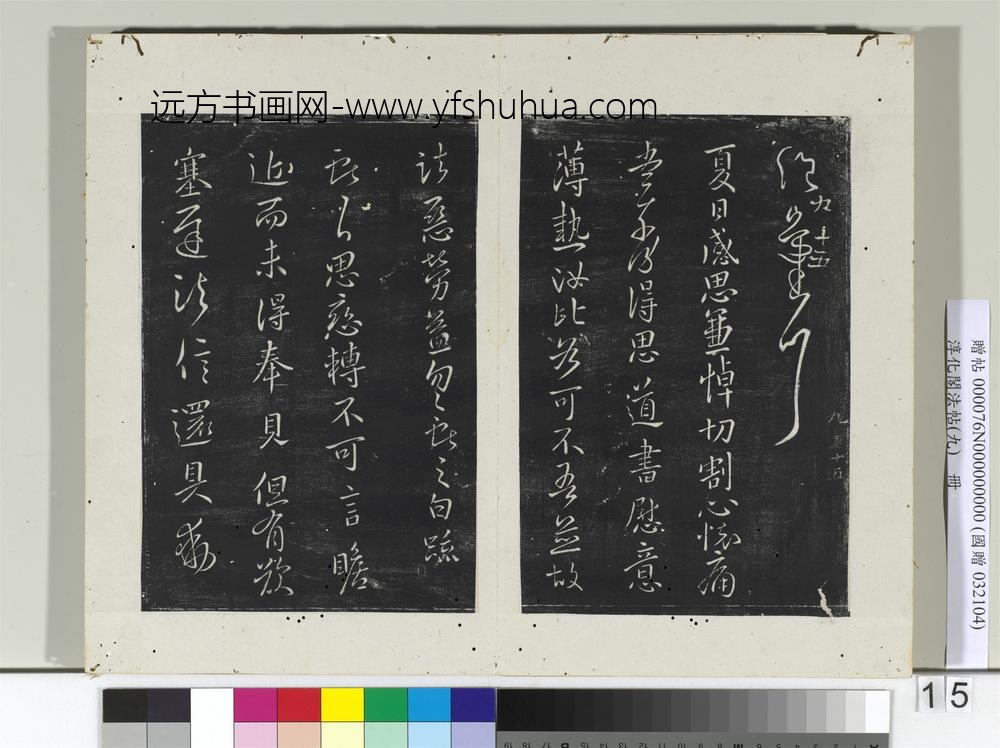 远方书画网-www.yfshuhua.com
九十五
夏日感思兼悼切割心懷痛
當奈何得思道書慰意
薄熱汝比各可不吾並故
諸惡勞益勿勿獻之白疏
獻之白思戀轉不可言瞻
近而未得奉見但有歎
塞遲諸信還具動
九 十五
贈帖 000076N000000000 (國贈 032104)
淳化閣法帖(九) 冊
15